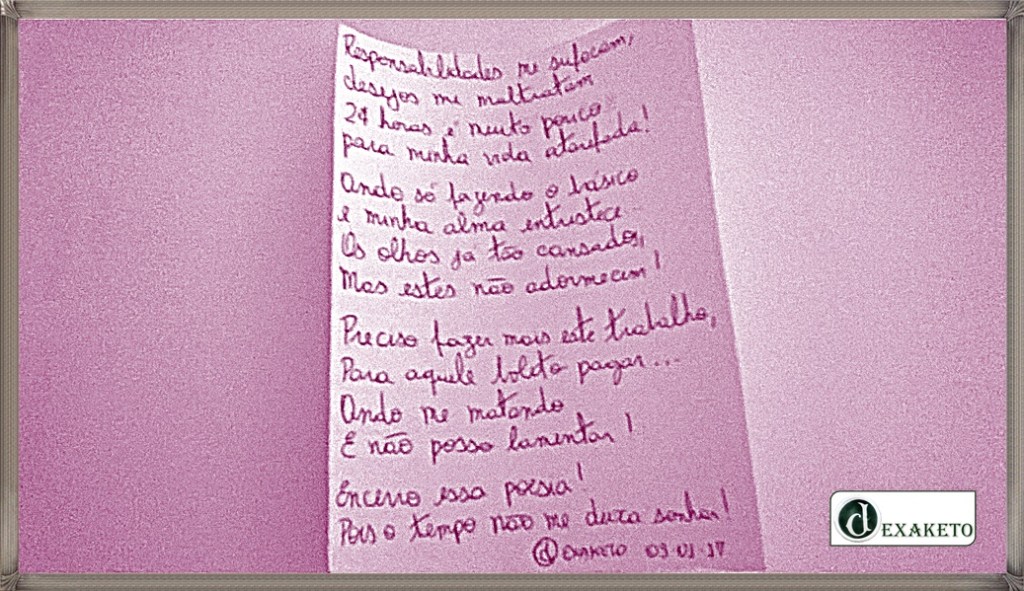 Responsabilidades me sufocam,
desejos me maltratam
24 horas é muito pouco
para minha vida atarefada!
Ando só fazendo o básico
e minha alma entristece...
Os olhos já tão cansados,
Mas estes não adormecem!
Preciso fazer mais este trabalho,
Para aquele boleto pagar...
Ando me matando
E não posso lamentar!
Encerro essa poesia!
Pois o tempo não me deixa sonhar!
dEXAKETO 09-01-17
dEXAKETO